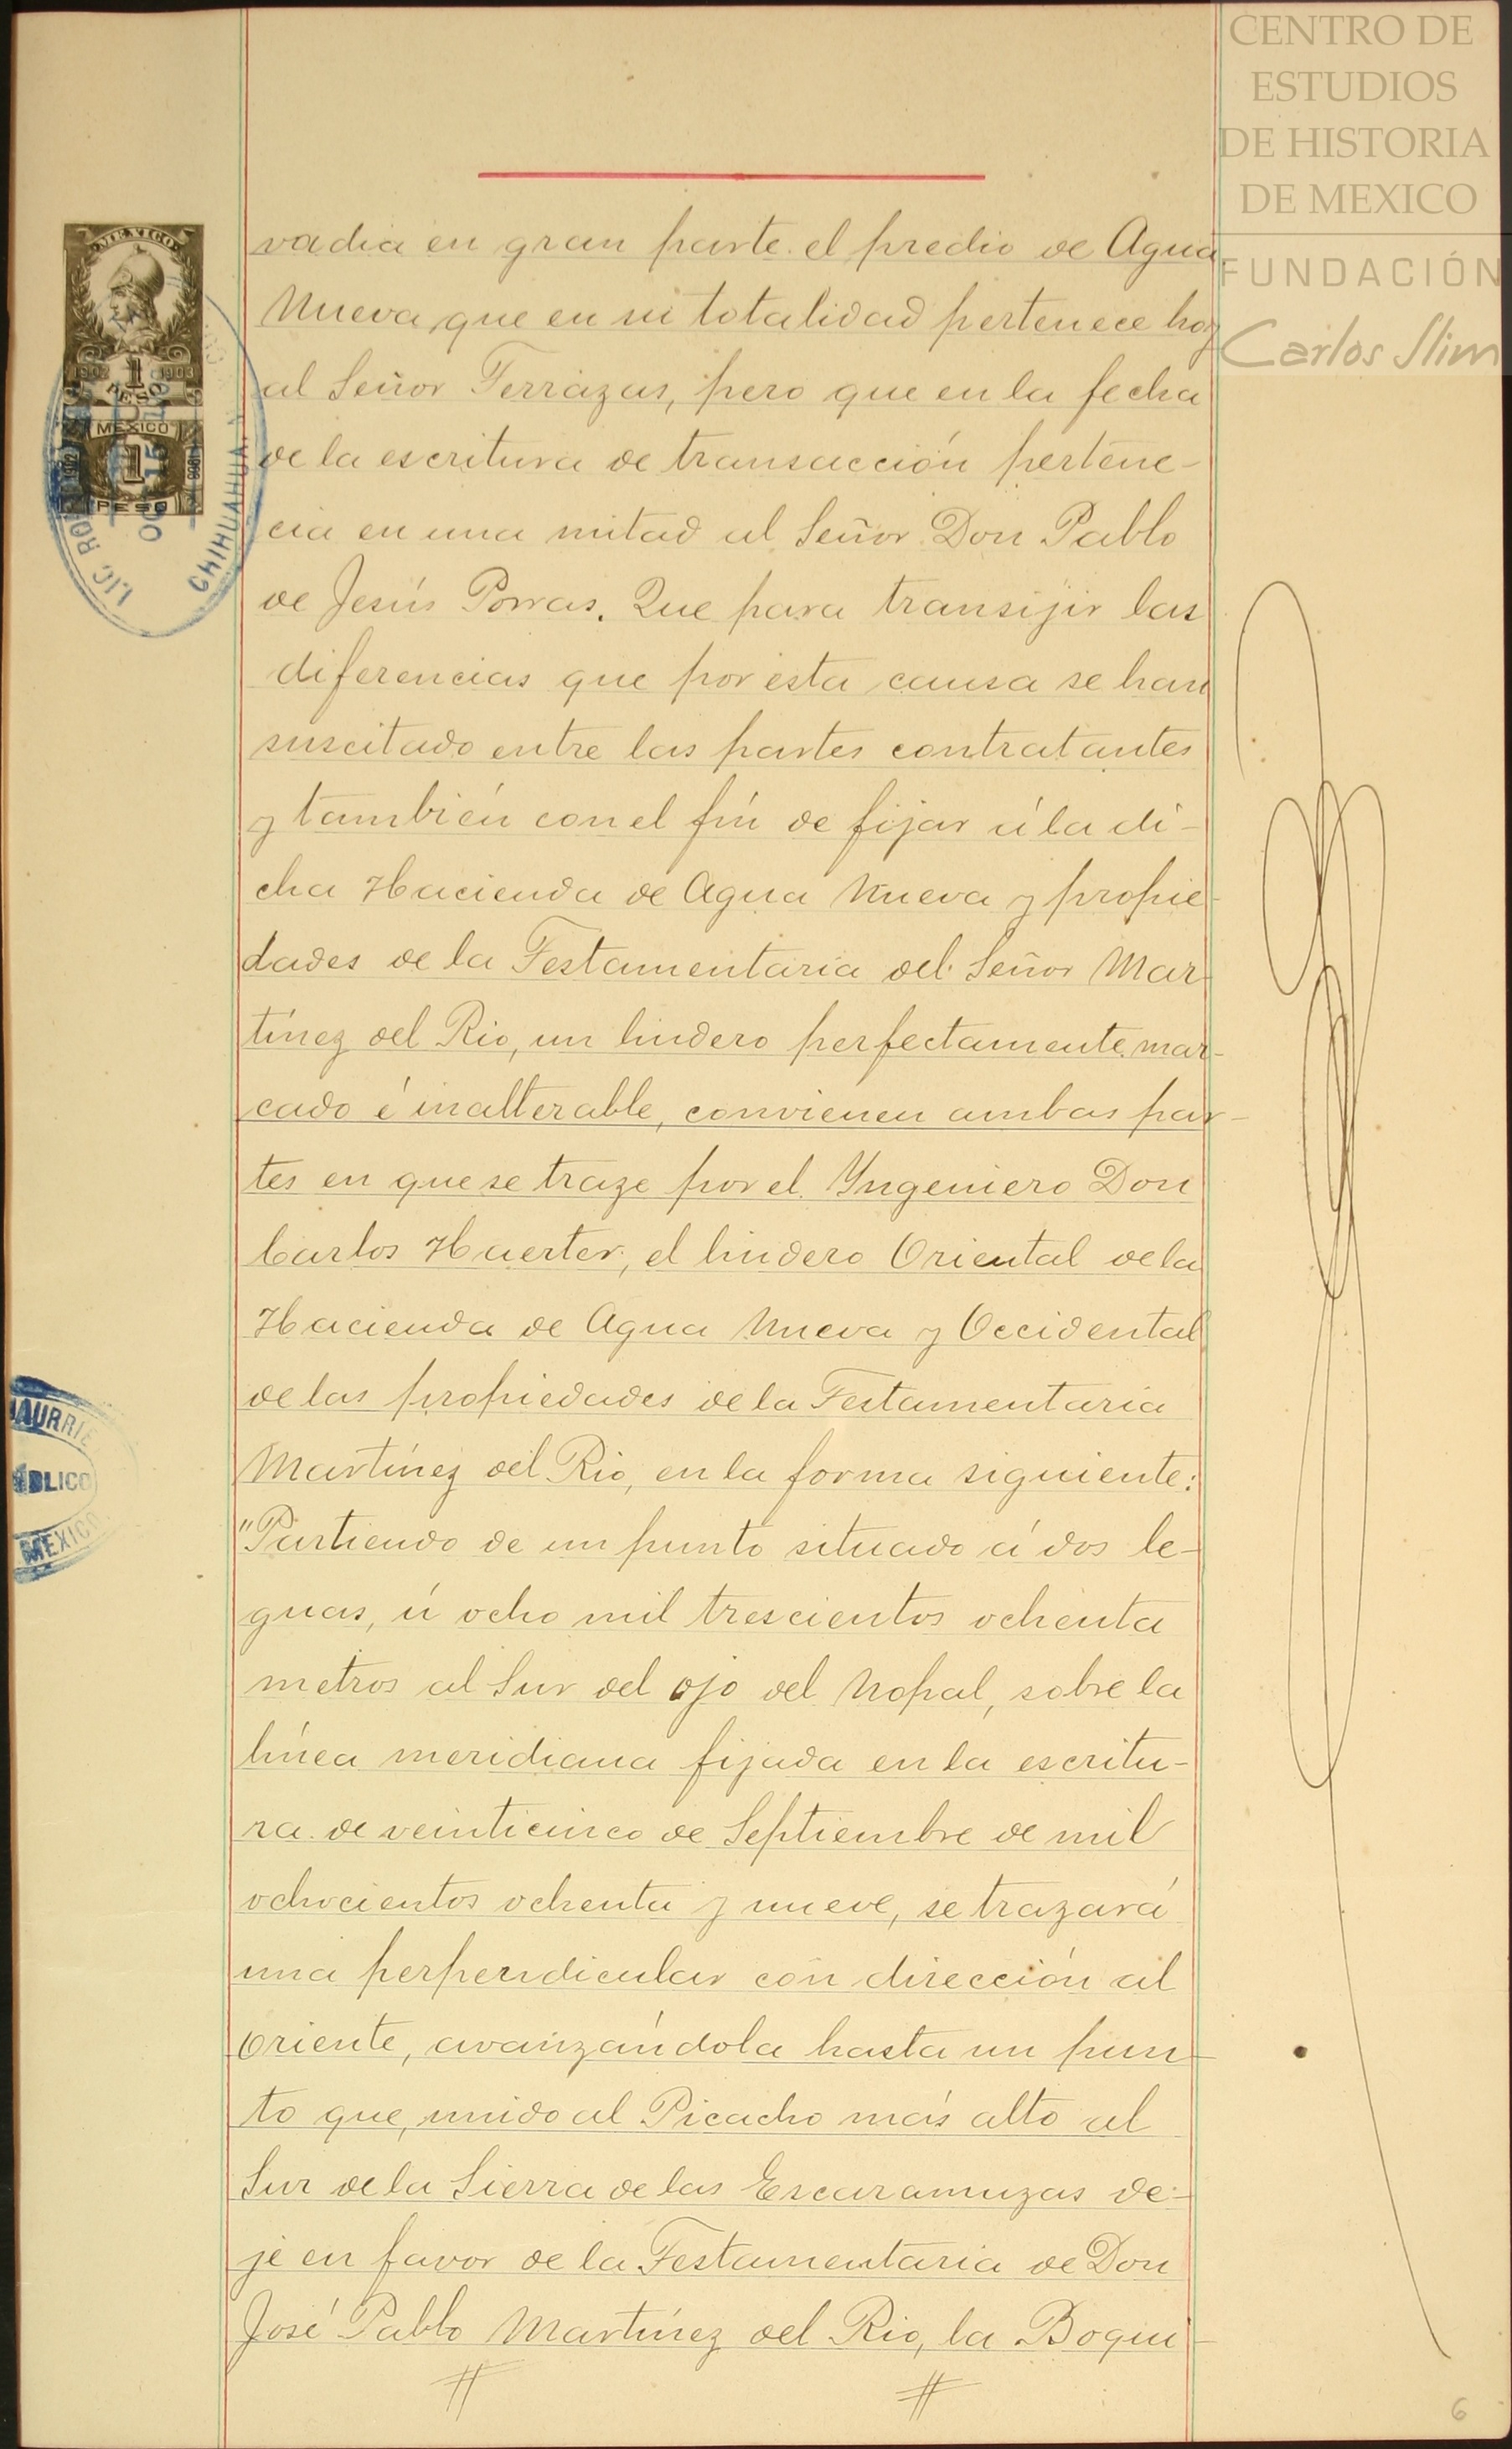 CENTRO DE
ESTUDIOS
DE HISTORIA
DE MEXICO
FUNDACIÓN
Carlos Slim
MEXICO
1902 1 1903
PESO
MEXICO
1
PESO
OC 15
LIC. RO
CHIHUAHUA
vadia en gran parte el predio de Agua
Nueva, que en su totalidad pertenece hoy
al Señor Terrazas, pero que en la fecha
de la escritura de transacción pertene-
cia en una mitad al Señor Don Pablo
de Jesús Porras. Que para transijir las
diferencias que por esta causa se han
suscitado entre las partes contratantes
y también con el fin de fijar á la di-
cha Hacienda de Agua Nueva y propie-
dades de la Testamentaria del Señor Mar-
tínez del Rio, un lindero perfectamente mar-
cado é inalterable, convienen ambas par-
tes en que se traze por el Yngeniero Don
Carlos Haerter, el lindero Oriental de la
Hacienda de Agua Nueva y Occidental
de las propiedades de la Testamentaria
Martínez del Rio, en la forma siguiente:
"Partiendo de un punto situado á dos le-
guas, ú ocho mil trescientos ochenta
metros al Sur del ojo del Nopal, sobre la
línea meridiana fijada en la escritu-
ra de veinticinco de Septiembre de mil
ochocientos ochenta y nueve, se trazará
una perpendicular con dirección al
Oriente, avanzándola hasta un pun-
to que, unido al Picacho más alto al
Sur de la Sierra de las Escaramuzas de-
je en favor de la Testamentaria de Don
José Pablo Martínez del Rio, la Boqui-
AURRIE
BLICO
MEXICO
6